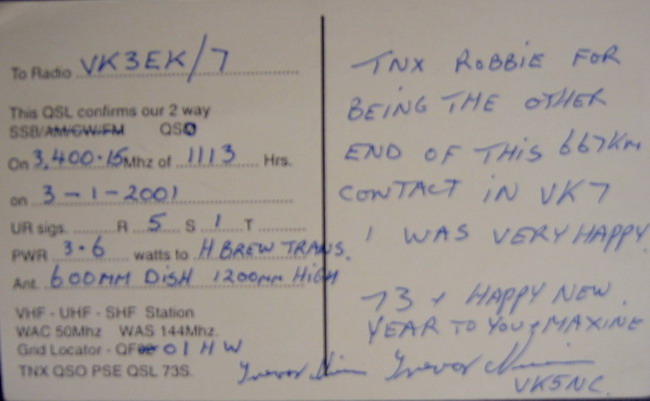 To Radio VK3EK/7
This QSL confirms our 2 way
SSB/AM/CW/FM QSO
On 3,400.15 Mhz of 1113 Hrs.
on 3-1-2001
UR sigs. R 5 S 1 T
PWR 3.6 watts to H BREW TRANS.
Ant. 600MM DISH 1200MM HIGH
VHF - UHF - SHF Station
WAC 50Mhz WAS 144Mhz.
Grid Locator - QF 01HW
TNX QSO PSE QSL 73S.
Trevor
TNX ROBBIE FOR
BEING THE OTHER
END OF THIS 667Km
CONTACT IN VK7
I WAS VERY HAPPY
73 + HAPPY NEW
YEAR TO YOU & MAXINE
Trevor
VK5NC.